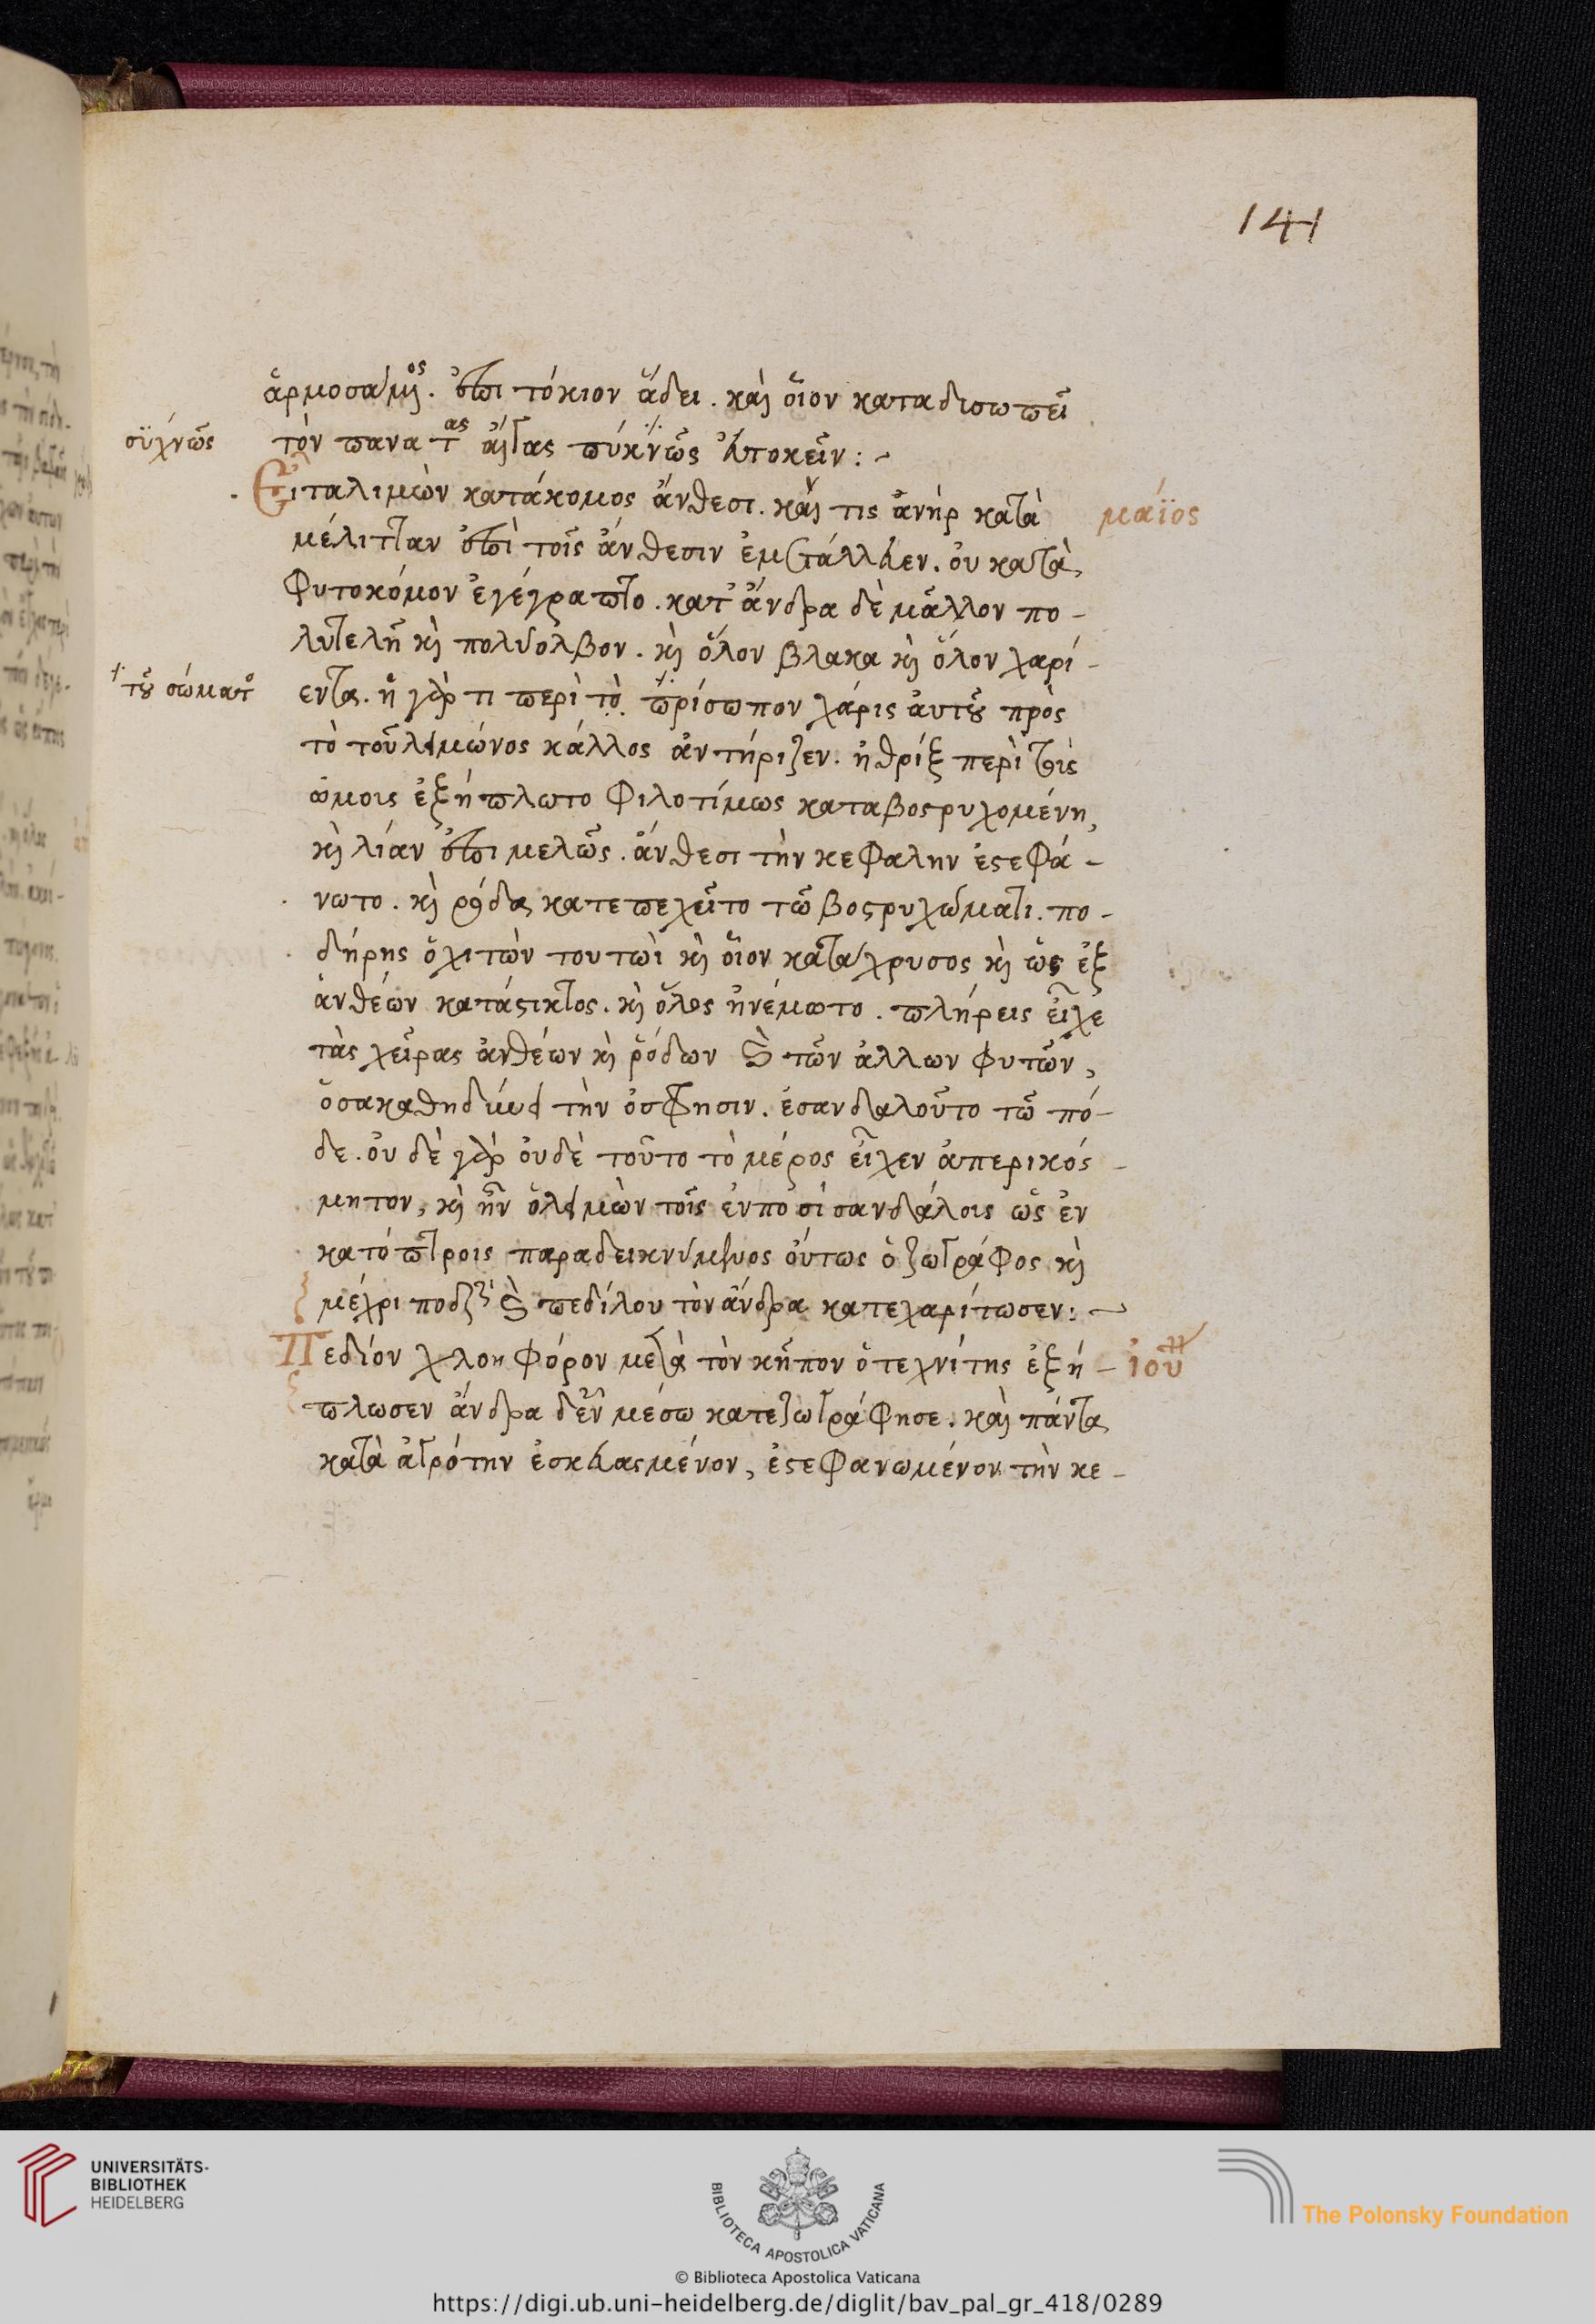 141
ἁρμοσάμενος. ἐπιτόκιον ἄδει. καὶ οἷον καταδυσωπεῖ
συχνῶς
τὸν πανα τὰς αἶγας πυκνῶς ἀποκεῖν :~
Εἶτα λιμὼν κατάκομος ἄνθεσι. κἄν τις ἀνὴρ κατὰ
μάϊος
μέλιτταν ἐπὶ τοῖς ἄνθεσιν ἐμβάλλειν. οὐ κατὰ
φυτοκόμον ἐγέγραπτο. κατ' ἄνδρα δὲ μᾶλλον πο-
λυτελῆ κὶ πολύολβον. κὶ ὅλον βλακα κὶ ὅλον χαρί-
τοῦ σώματος
εντα. ἡ γάρ τι περὶ τὸ πρόσωπον χάρις ἀυτοῦ πρὸς
τὸ τοῦ λειμώνος κάλλος ἀντήριζεν. ἡ θρίξ περὶ τοῖς
ὤμοις ἐξήπλωτο φιλοτίμως καταβοστρυχομένη,
κὶ λίαν ἐπιμελῶς. ἄνθεσι τὴν κεφαλην ἐστεφά-
νωτο. κὶ ρόδα κατεπεχεῖτο τῶ βοστρυχώματι. πο-
δήρης ὁ χιτὼν τουτωὶ κὶ οἷον κατάχρυσος κὶ ὡς ἐξ
ἀνθέων κατάστικτος. κὶ ὅλος ἠνέμωτο. πλήρεις εἶχε
τὰς χεῖρας ἀνθέων κὶ ῥόδων καὶ τῶν ἄλλων φυτῶν,
ὅσα καθηδύνει τὴν ὄσφρησιν. ἐσανδαλοῦτο τῶ πό-
δε. οὐ δὲ γάρ οὐδὲ τοῦτο τὸ μέρος εἶχεν ἀπερικόσ-
μητον, κὶ ἦν ὁ λειμὼν τοῖς ἐν ποσὶ σανδάλοις ὡς ἐν
κατόπτροις παραδεικνύμενος οὕτως ὁ ζωγράφος κὶ
μέχρι ποδῶν καὶ πεδίλου τὸν ἄνδρα κατεχαρίτωσεν :~
Πεδίον χλοηφόρον μετὰ τὸν κῆπον ὁ τεχνίτης ἐξή-
ἰού
πλωσεν ἄνδρα δ' ἐν μέσω κατεζωγράφησε. καὶ πάντα
κατὰ ἀγρότην ἐσκευασμένον, ἐστεφανωμένον τὴν κε-
UNIVERSITÄTS-
BIBLIOTHEK
HEIDELBERG
BIBLIOTECA APOSTOLICA VATICANA
The Polonsky Foundation
© Biblioteca Apostolica Vaticana
https://digi.ub.uni-heidelberg.de/diglit/bav_pal_gr_418/0289